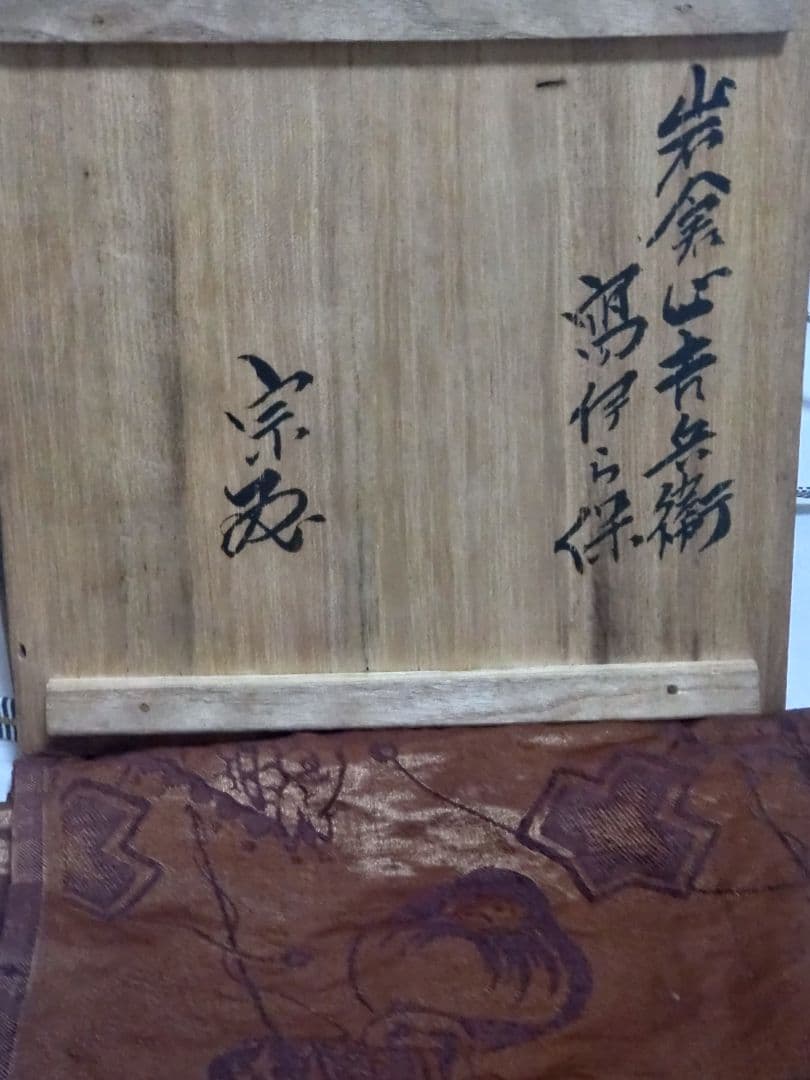 岩倉山吉兵衛
寫伊ら保
宗